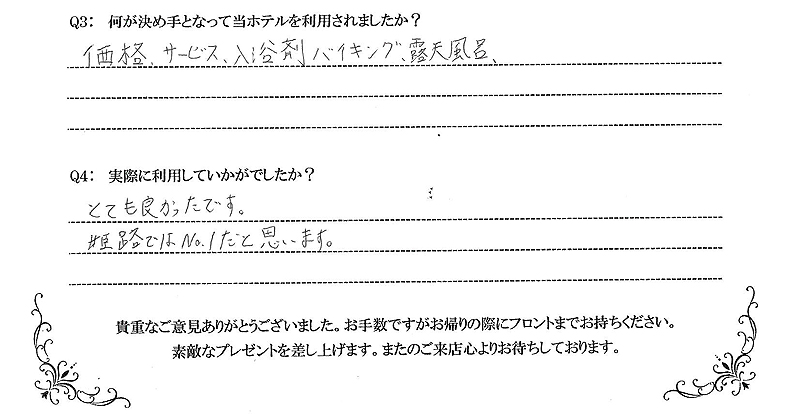 Q3: 何が決め手となって当ホテルを利用されましたか？
価格、サービス、入浴剤バイキング、露天風呂、
Q4: 実際に利用していかがでしたか？
とても良かったです。
姫路ではNo.1だと思います。
貴重なご意見ありがとうございました。お手数ですがお帰りの際にフロントまでお持ちください。
素敵なプレゼントを差し上げます。またのご来店心よりお待ちしております。